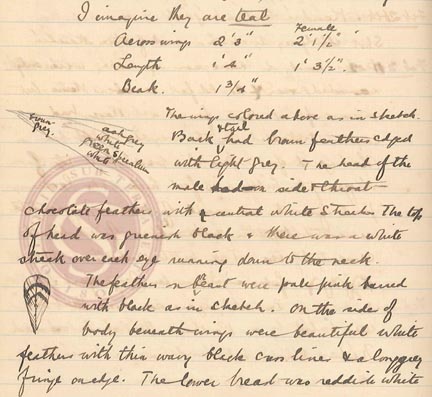 I imagine they are teal
Female
Across wings 2' 3" 2' 1½"
Length 1' 4" 1' 3½".
Beak. 1¾"
The wings colored above as in sketch.
brown grey.
ash grey
white
green speculum
white
& tail
Back had brown feathers edged
with light grey. The head of the
male side & throat
chocolate feathers with central white streaks. The top
of head was greenish black & there was a white
streak over each eye running down to the neck.
The feathers on breast were pale pink barred
with black as in sketch. On the side of
body beneath wings were beautiful white
feathers with thin wavy black cross lines & a long grey
fringe on edge. The lower breast was reddish white